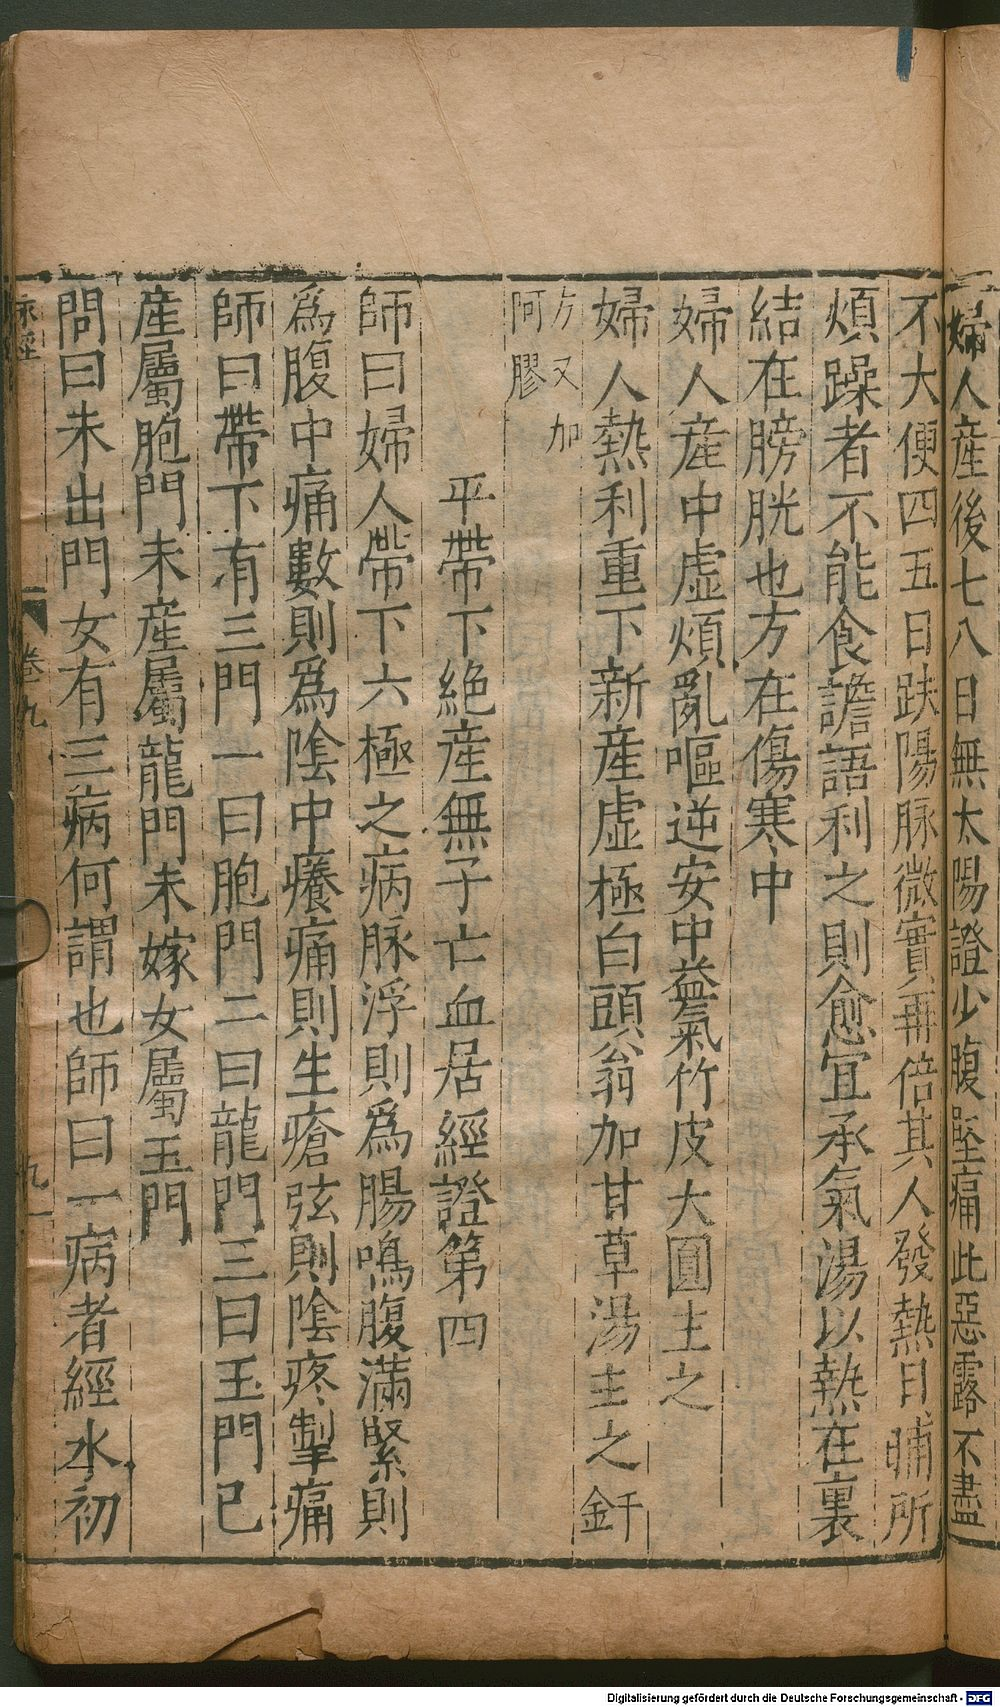 婦人産後七八日無太陽證少腹堅痛此惡露不盡
不大便四五日趺陽脉微實再倍其人發熱日晡所
煩躁者不能食譫語利之則愈宜承氣湯以熱在裏
結在膀胱也方在傷寒中
婦人産中虛煩亂嘔逆安中益氣竹皮大圓主之
婦人熱利重下新産虛極白頭翁加甘草湯主之
方又加
阿膠
平帶下絶産無子亡血居經證第四
師曰婦人帶下六極之病脉浮則爲腸鳴腹滿緊則
爲腹中痛數則爲陰中癢痛則生瘡弦則陰疼掣痛
師曰帶下有三門一曰胞門二曰龍門三曰玉門已
産屬胞門未産屬龍門未嫁女屬玉門
問曰未出門女有三病何謂也師曰一病者經水初
脉經
卷九
九
Digitalisierung gefördert durch die Deutsche Forschungsgemeinschaft - DFG